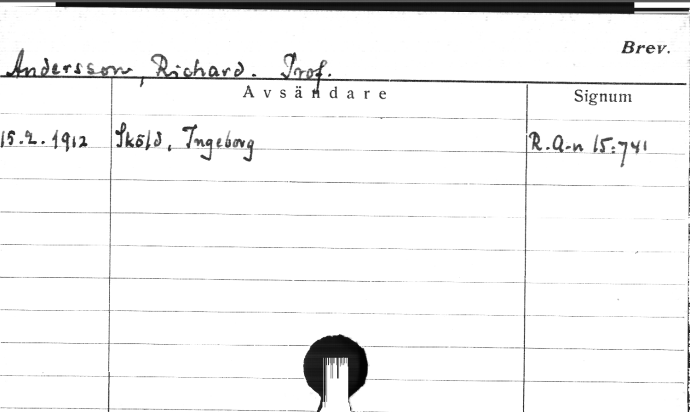 Brev.
Andersson, Richard. Prof.
Avsändare Signum
15.2.1912 Sköld, Ingeborg R.A-n 15:741